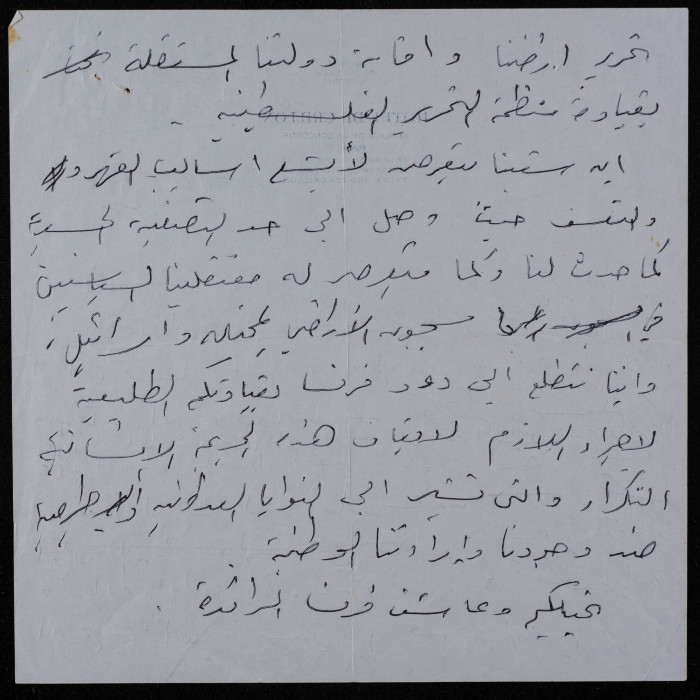 تحرير ارضنا واقامة دولتنا المستقلة
بقيادة منظمة التحرير الفلسطينية .
ان شعبنا يتعرض لأبشع اساليب القهر و
والتعسف حيث وصل الى حد التصفية الجسدية
كما حدث لنا وكما يتعرض له معتقلينا السياسيين
في سجون الأراضي المحتلة واسرائيل .
واننا نتطلع الى دور فرنسا بقيادتكم الطليعية
لاجراء اللازم لايقاف هذه الجريمة الانسانية
التكرار والتي تشير الى النوايا العدوانية
ضد وجودنا وإرادتنا الوطنية .
نحييكم وعاشت فرنسا الرائدة .